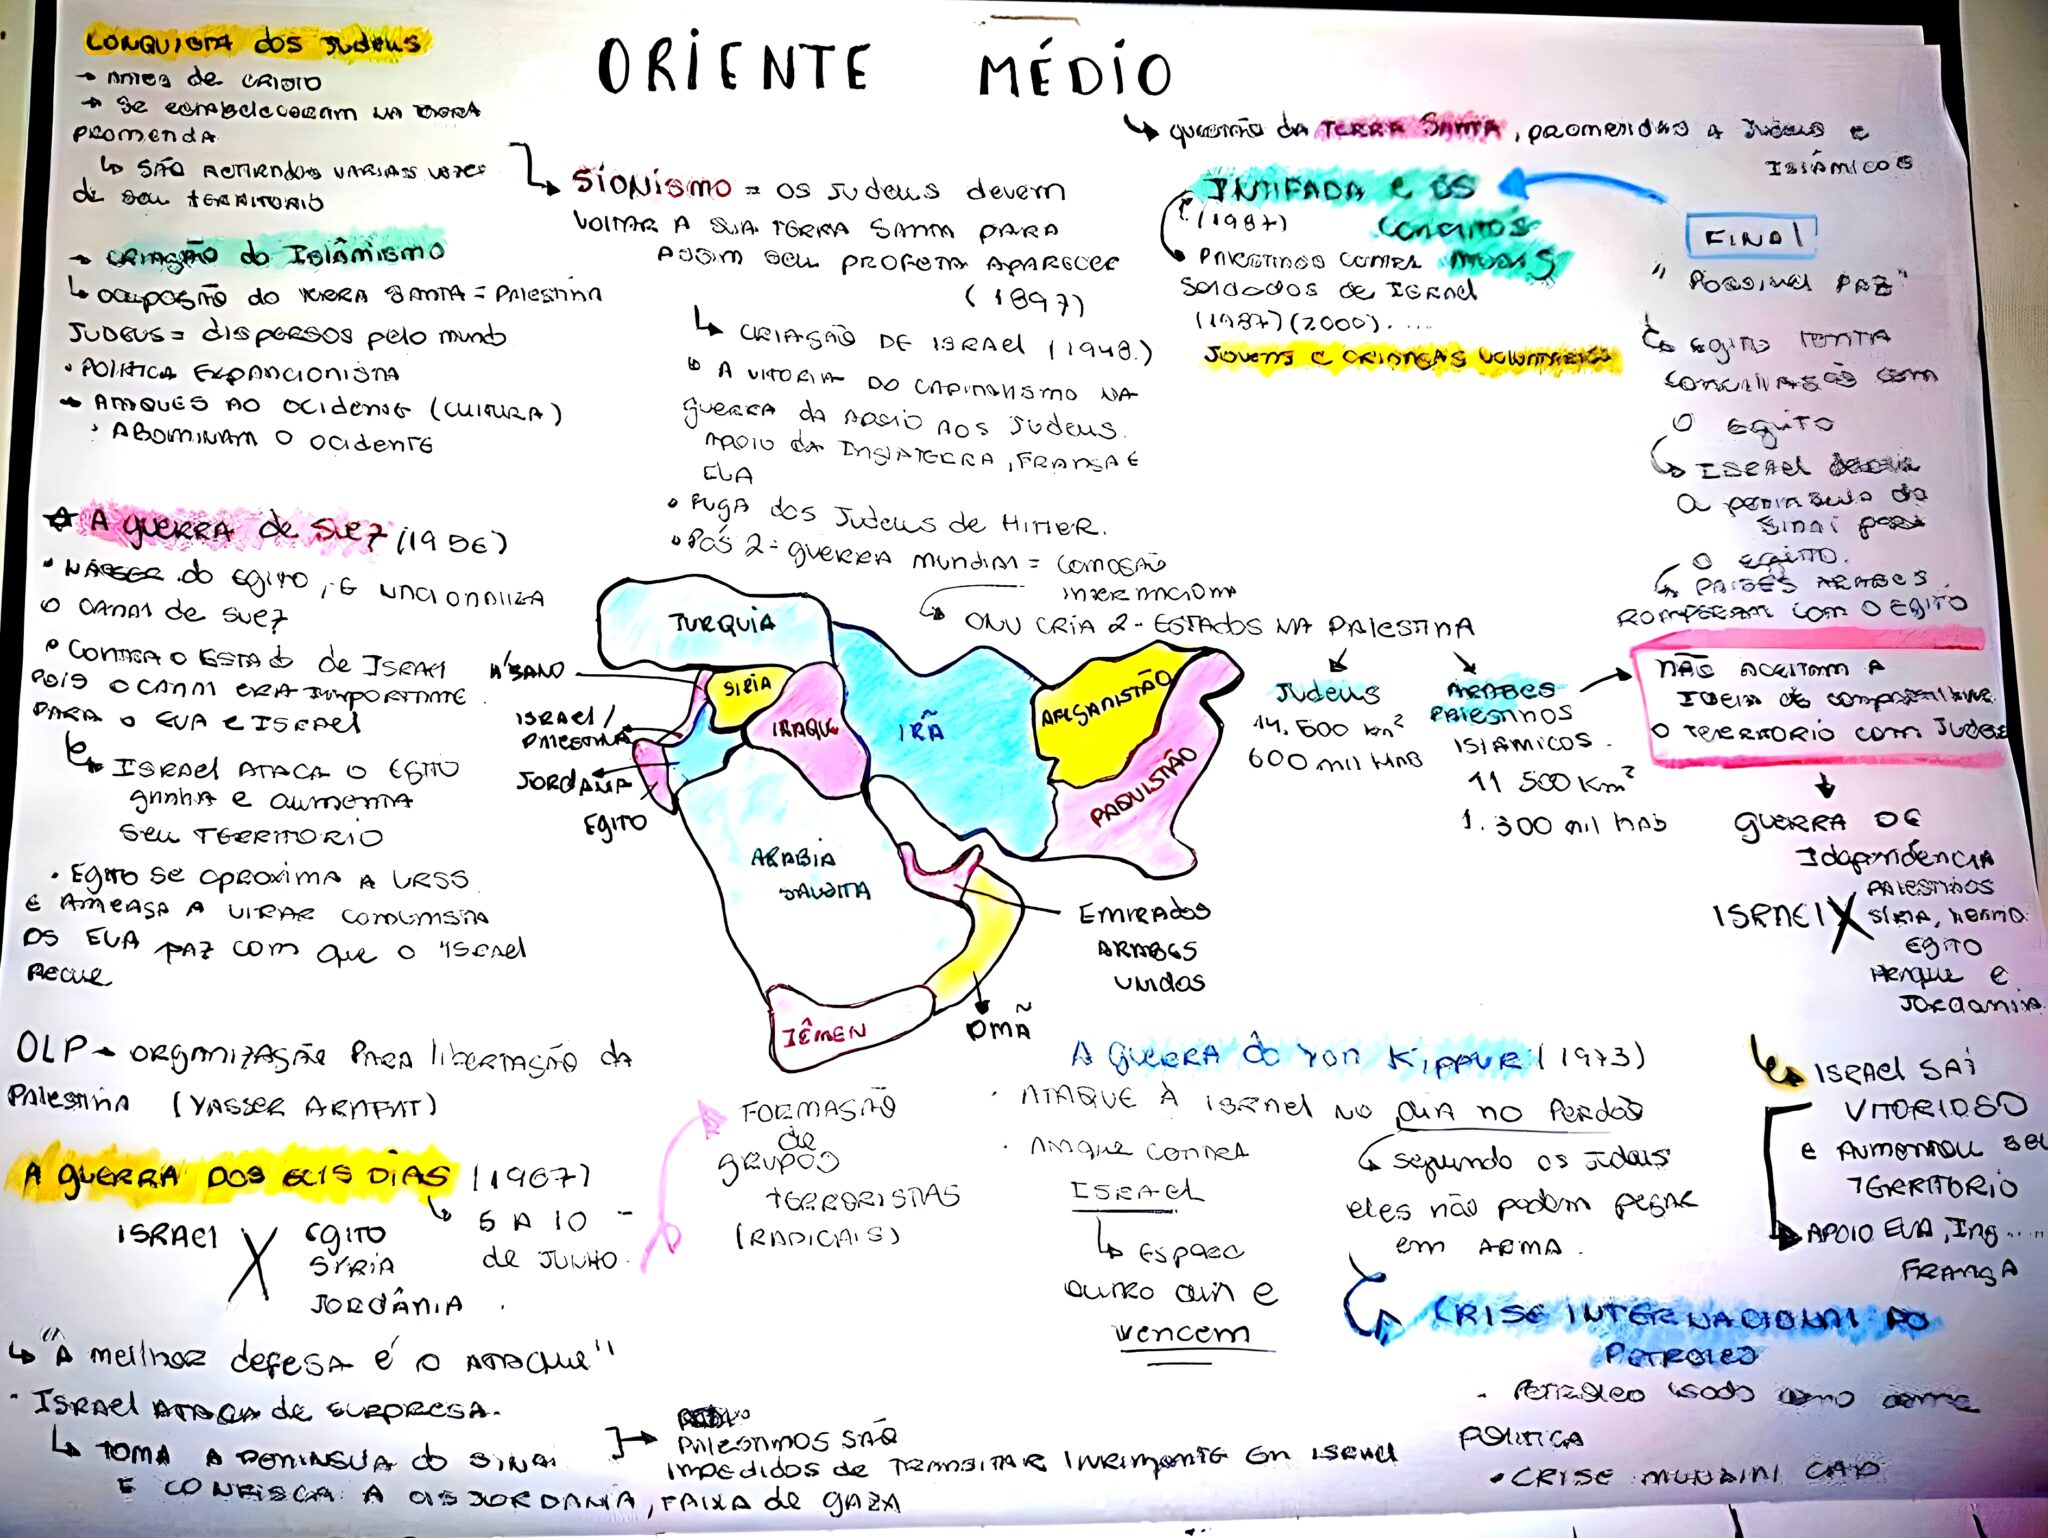 ORIENTE MÉDIO
↳ questão da TERRA SANTA, promeridas a Judeus e
Islâmicos
CONQUISTA dos Judeus
→ Antes de Cristo
→ Se estabeleceram na terra
promenda
↳ São retirados varias vezes
de seu território
→ criação do Islâmismo
↳ ocuposão do terra santa = Palestina
Judeus = dispersos pelo mundo
• Politica expancionista
→ Ataques ao ocidente (cultura)
• Abominam o ocidente
Sionismo = os Judeus devem
voltar a sua terra santa para
assim seu profeta aparecer
(1897)
↳ criasão de Israel (1948.)
↳ A vitoria do capitalismo na
guerra da apoio aos Judeus.
Apoio da Inglaterra, Fransa e
EUA
• Fuga dos Judeus de Hitler.
• Pós 2ª guerra mundial = comosão
internacional
↳ ONU cria 2 - Estados na Palestina
Judeus
14.500 km²
600 mil hab
Árabes
Palestinos
Islâmicos.
11 500 Km²
1.300 mil hab
→ Não aceitam a
Ideia de compartilhar
o territorio com Judeus
Guerra de
Idependência
Israel X Palestinos
Síria,
Egito
Iraque e
Jordania
↳ Israel sai
vitorioso
e aumentou seu
território
→ Apoio EUA, Ing....
Fransa
INTIFADA e os
conflitos
atuais
(1987)
• Palestinos contra
soldados de Israel
(1987) (2000)....
Jovens e crianças voluntários
FINAL
" Possivel Paz"
↳ Egito tenta
conciliasão com
o Egito
↳ Israel
a peninsula do
Sinai para
o Egito.
↳ Paises Arabes
romperam com o Egito
☆ A guerra de Suez (1956)
• Násser do Egito, e nacionaliza
o canal de Suez
• Contra o Estado de Israel
pois o canal era importante
para o EUA e Israel
↳ Israel ataca o Egito
ganha e aumenta
seu território
• Egito se aproxima a URSS
e ameasa a virar comunista
os EUA faz com que o Israel
recue
TURQUIA
SIRIA
IRAQUE
IRÃ
AFEGANISTÃO
PAQUISTÃO
ISRAEL/
PALESTINA
JORDANIA
EGITO
ARABIA
SAUDITA
EMIRADOS
ARABES
UNIDOS
OMÃ
IÊMEN
OLP → Organizasão para libertasão da
Palestina (Yasser Arafat)
A guerra dos seis dias (1967)
↳ 5 a 10
de Junho.
Israel X Egito
Syria
Jordânia.
Formasão
de
grupos
terroristas
(radicais)
↳ "A melhor defesa é o ataque"
• Israel ataca de surpresa.
↳ Toma a peninsula do Sinai
e confisca a cisjordania, faixa de gaza
→ Palestinos são
impedidos de transitar livremente em Israel
A guerra do Yon Kippur (1973)
• Ataque à Israel no dia no perdão
↳ segundo os Judeus
eles não podem pegar
em arma.
• Ataque contra
Israel
↳ Espera
outro dia e
vencem
↳ CRISE INTERNACIONAL DO
PETROLEO
• Petróleo usado como arma
politica
• Crise mundial